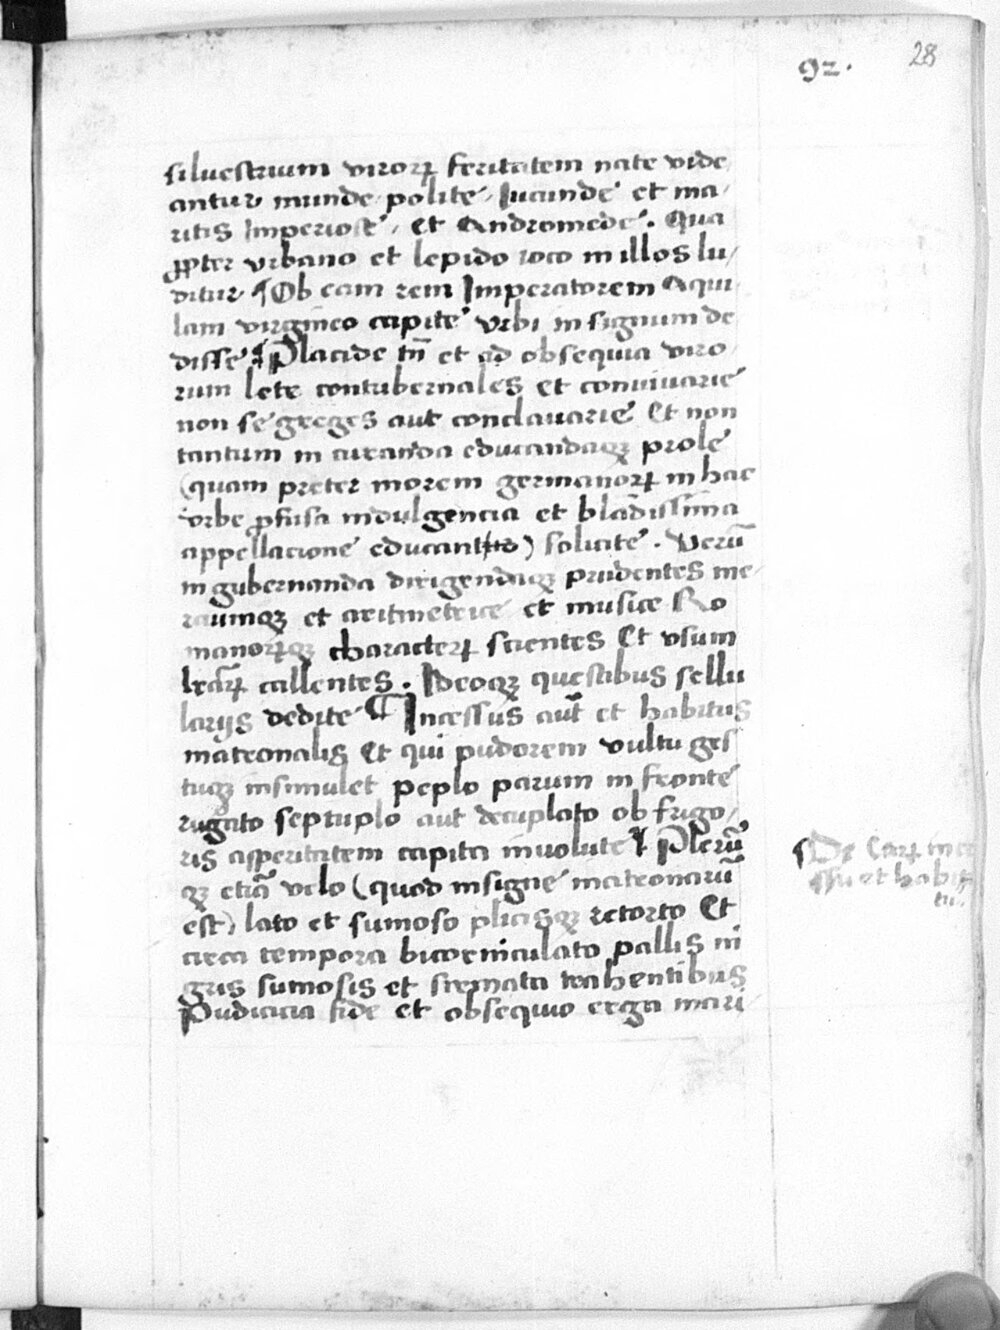 92.
28
siluestrium virorꝝ feritatem nate vide
antur munde polite, Iucunde et ma
ritis Imperiose, et Andromede. Qua
ꝓpter vrbano et lepido ioco in illos lu
ditur ¶ Ob eam rem Imperatorem Aqui
lam virgineo capite vrbi in signum de
disse ¶ Placide tñ et ad obsequia viro
rum lete contubernales et conviuarie
non se greges aut conclauarie Et non
tantum in curanda educandaqꝫ prole
(quam preter morem germanorꝝ in hac
vrbe ꝓfusa indulgencia et blādissima
appellacione educant) solicite. Verū
in gubernanda dirigendaqꝫ prudentes me
raumqꝫ et aritmetrice et musice Ro
manorꝝqꝫ characterꝝ scientes Et vsum
lr̄arꝝ callentes. Ideoqꝫ questibus sellu
larijs dedite ¶ Incessus aūt et habitus
matronalis Et qui pudorem vultu ges
tuqꝫ insimulet peplo parum in fronte
rugato septuplo aut decuplato ob frigo
ris asperitatem capita inuolute ¶ Plerū
qꝫ etiā velo (quod insigne matronarū
est) lato et sumoso plicisqꝫ retorto Et
circa tempora bicorniculato pallis ni
gris sumosis et sirmata trahentibus
Pudicicia fide et obsequio erga mari
¶ De earꝝ ince
ssu et habi
tu.